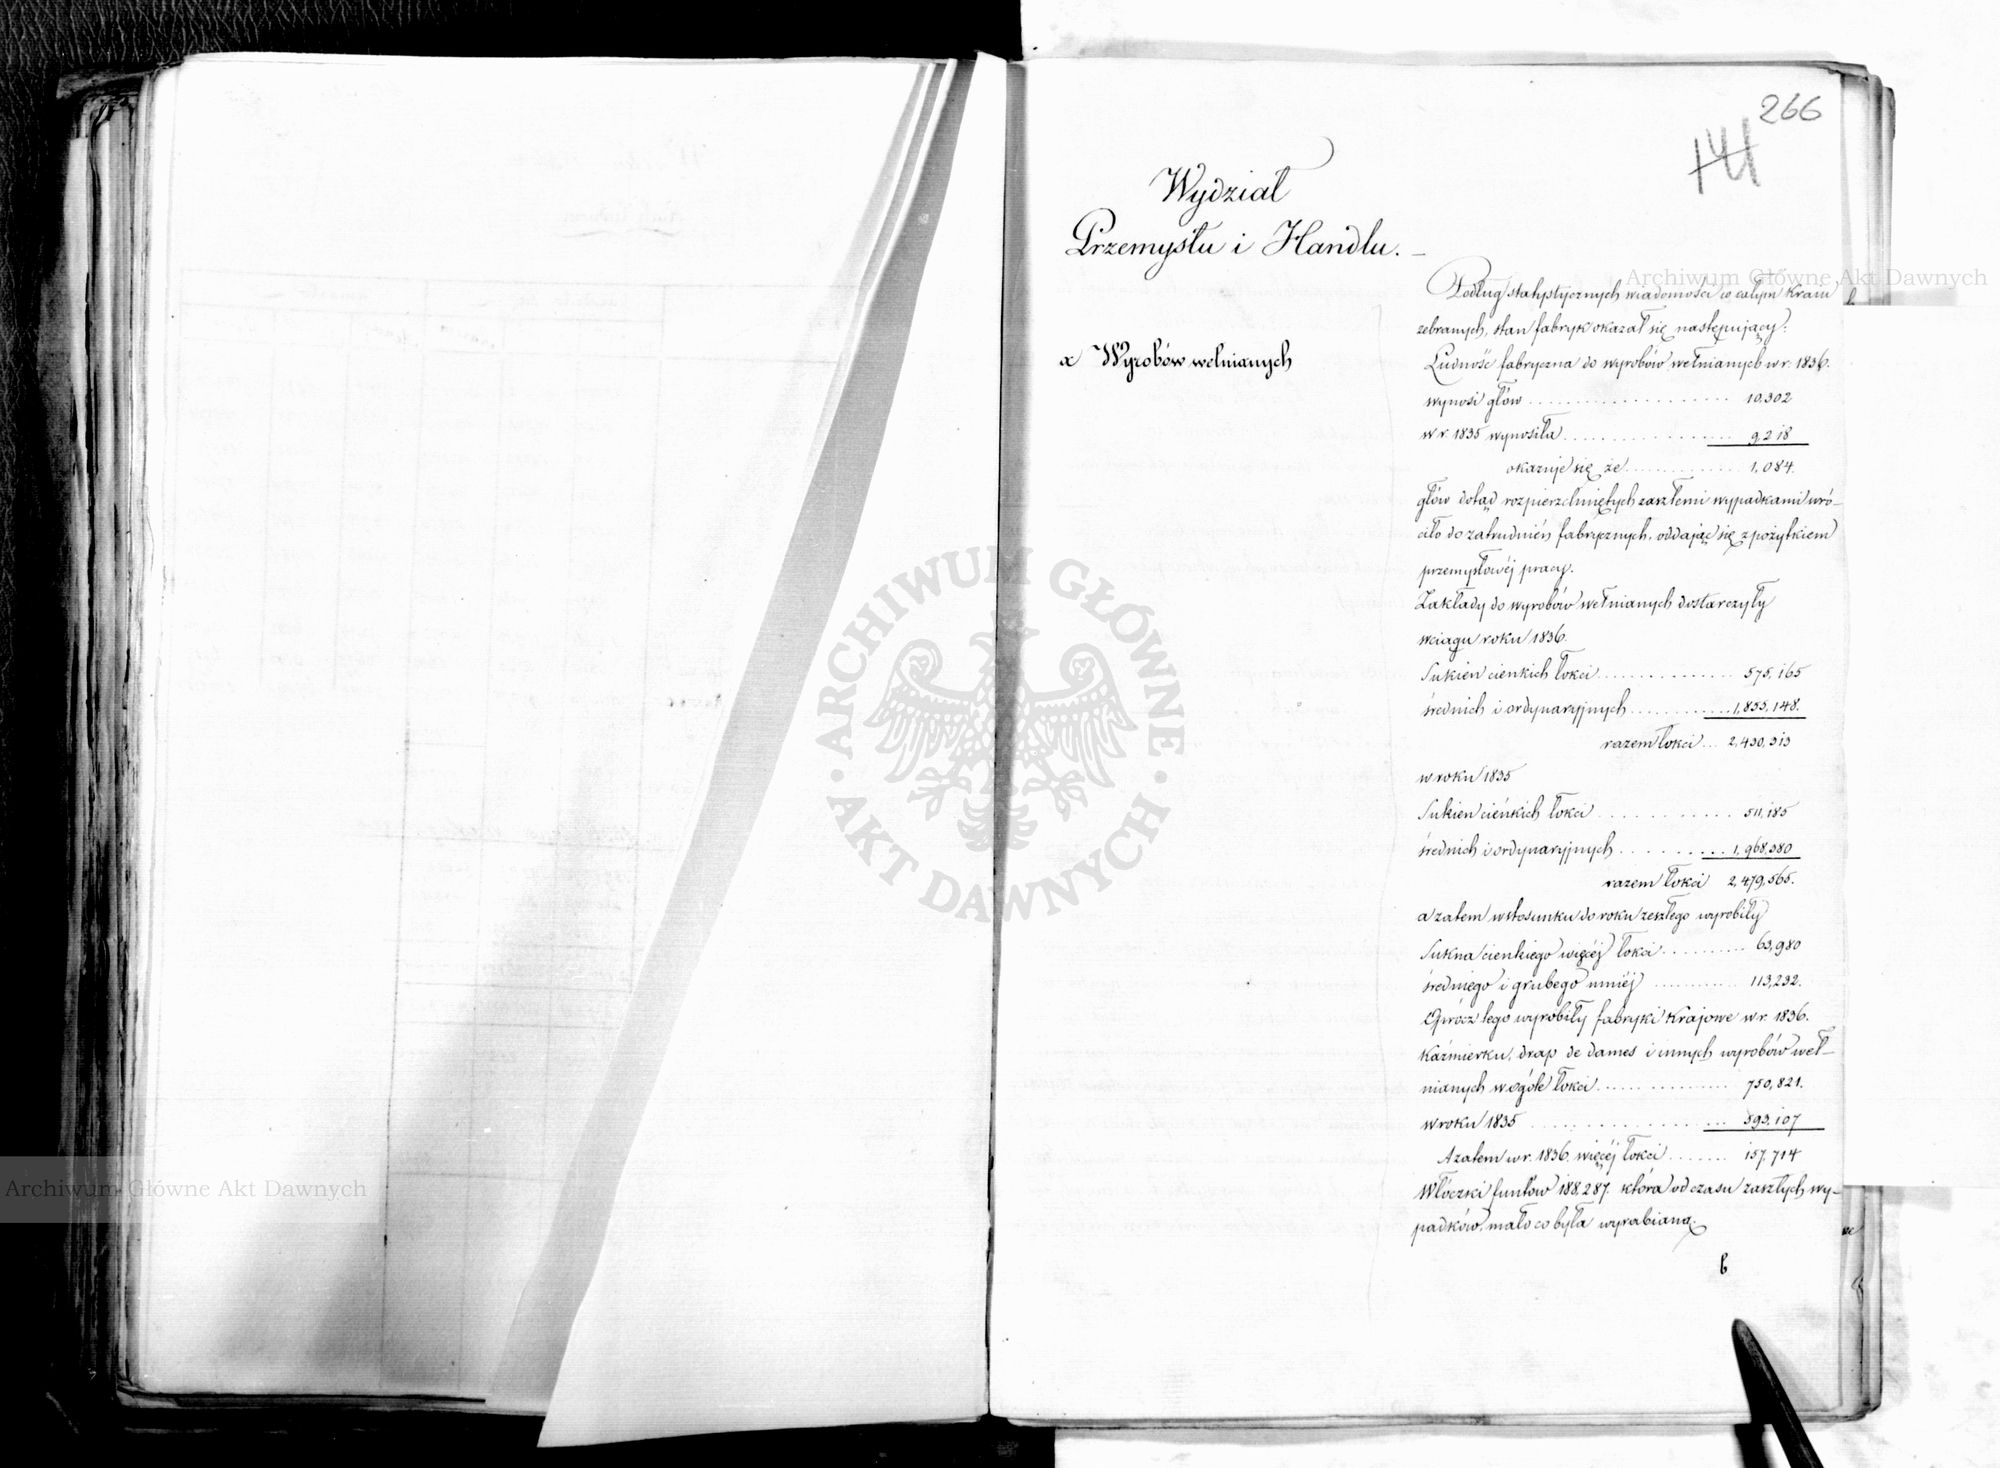 266
141
Wydział
Przemysłu i Handlu.
a Wyrobów wełnianych
Podług statystycznych wiadomości w całym Kraiu
zebranych, stan fabryk okazał się następujący:
Ludność fabryczna do wyrobów wełnianych w r. 1836.
wynosi głów . . . . . . . . . . . . . . . . . . . . 10,302
w r. 1835 wynosiła . . . . . . . . . . . . . . . . . 9218
okazuje się że . . . . . . . . . . . . 1,084.
głów dotąd rozpierzchniętych zaszłemi wypadkami wró-
ciło do zatrudnień fabrycznych, oddając się z pożytkiem
przemysłowéj pracy.
Zakłady do wyrobów wełnianych dostarczyły
w ciągu roku 1836.
Sukien cienkich łokci . . . . . . . . . . . . . . 575,165
średnich i ordynaryjnych . . . . . . . . . . . 1,855,148.
razem łokci . . . 2,430,313
w roku 1835
Sukien cieńkich łokci . . . . . . . . . . . . 511,185
średnich i ordynaryjnych . . . . . . . . . . 1,968,380
razem łokci 2,479,565.
a zatem w stosunku do roku zeszłego wyrobiły
Sukna cienkiego więcéj łokci . . . . . . . . . . 63,980
średniego i grubego mniéj . . . . . . . . . . . 113,232.
Oprócz tego wyrobiły fabryki Krajowe w r. 1836.
Kaźmierku, drap de dames i innych wyrobów weł-
nianych w ogóle łokci . . . . . . . . . . . . . . 750,821.
w roku 1835 . . . . . . . . . . . . . . . . . . . . 593,107
A zatem w r. 1836. więcéj łokci . . . . . . . 157,714
Włóczki funtów 188,287. która od czasu zaszłych wy-
padków, mało co była wyrabianą.
b
Archiwum Główne Akt Dawnych
ARCHIWUM GŁÓWNE
AKT DAWNYCH
Archiwum Główne Akt Dawnych